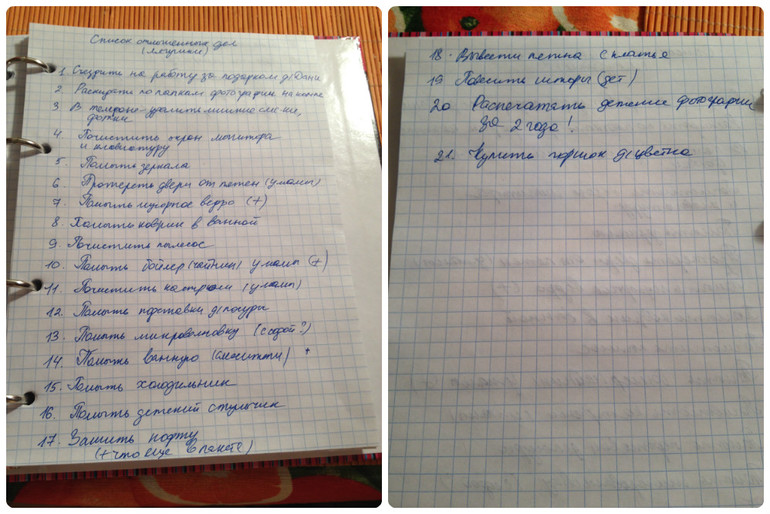 Список отложенных дел
(мелочи)
1. Съездить на работу за подарком д/Дани
2. Раскидать по папкам фотографии на компе
3. В телефоне - удалить лишние
фотки
4. Почистить экран монитора
и клавиатуру
5. Помыть зеркала
6. Протереть двери от пятен (у мамы)
7. Помыть мусорное ведро (+)
8. Помыть коврик в ванной
9. Почистить пылесос
10. Помыть бойлер (чайник) у мамы (+)
11. Почистить кастрюли (у мамы)
12. Помыть подставки д/посуды
13. Помыть микроволновку (содой?)
14. Помыть ванную (смесители) +
15. Помыть холодильник
16. Помыть детский стульчик
17. Зашить кофту
(+ что еще в пакете)
18. Вывести пятна с платья
19. Повесить шторы (дет)
20 Распечатать детские фотографии
за 2 года!
21. Купить горшок д/цветка